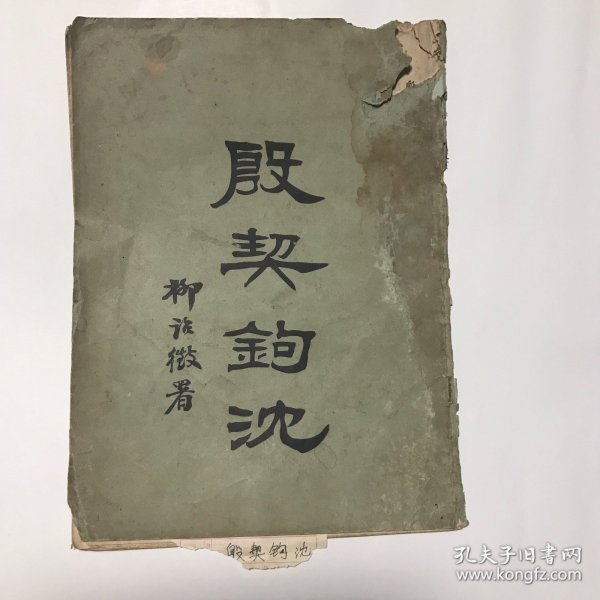 殷契鉤沈
柳詒徵署
殷契鈎沈
孔夫子旧书网
www.kongfz.com